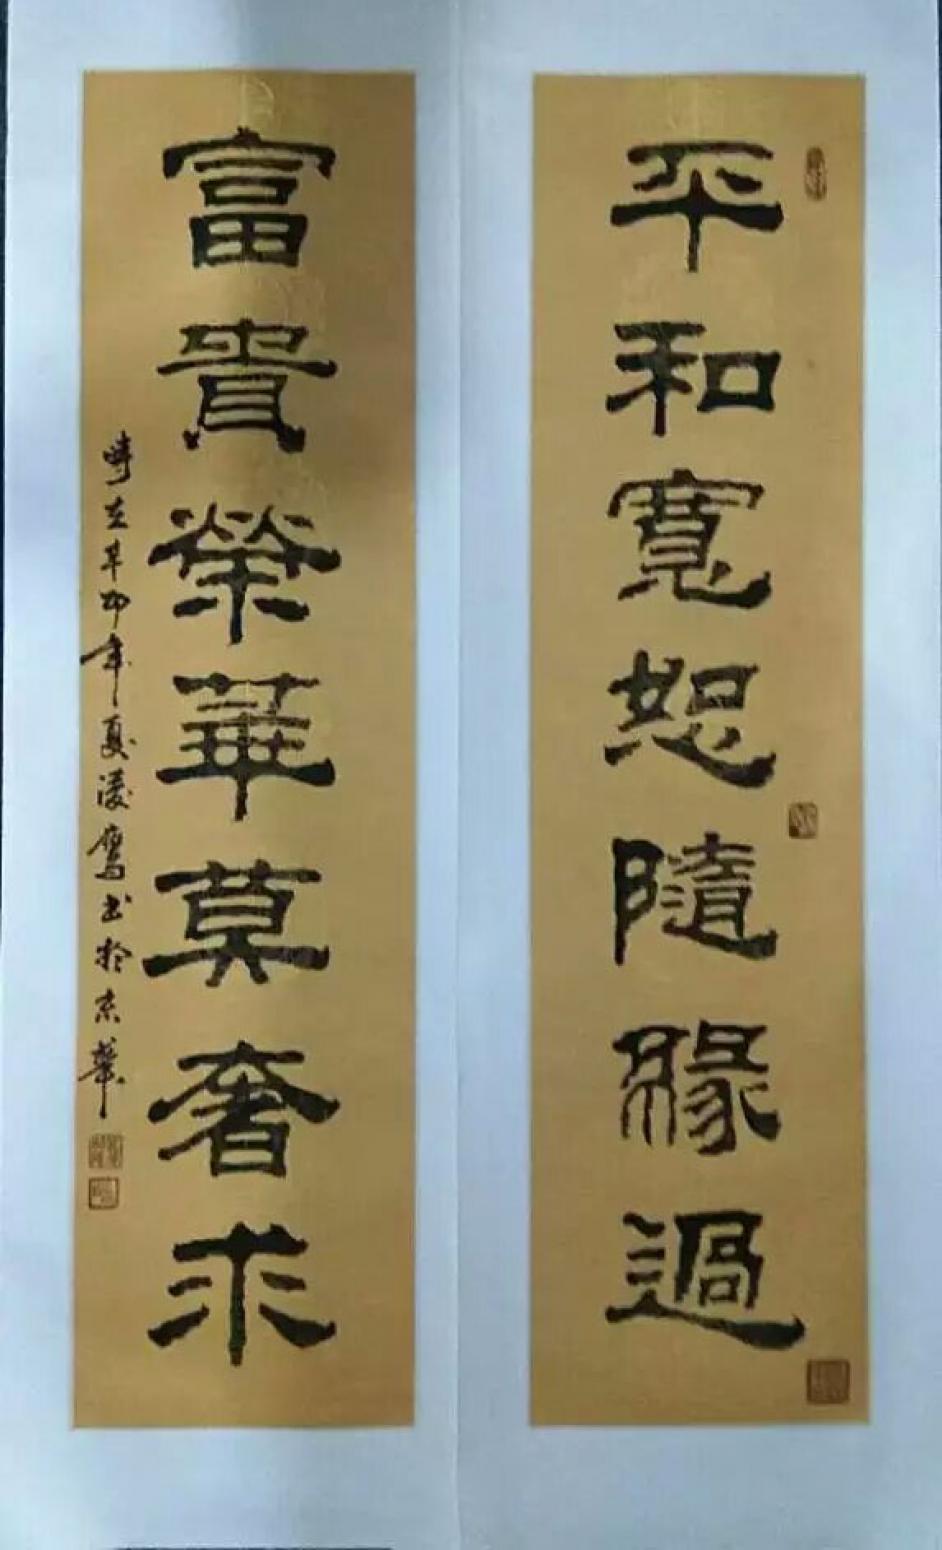 平和寬恕隨緣過
富貴榮華莫奢求
時在辛卯年夏凌鹰书於京華